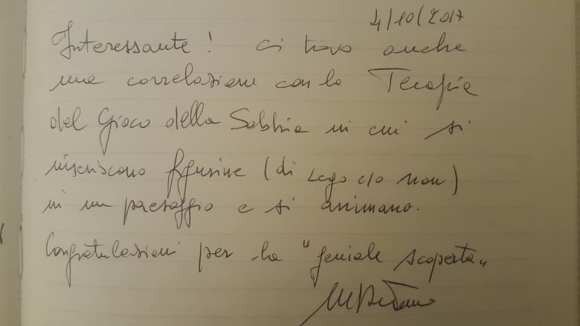 4/10/2017
Interessante! ci trovo anche
una correlazione con la Terapia
del Gioco della Sabbia in cui si
inseriscono figurine (di Lego e/o non)
in un paesaggio e si animano.
Congratulazioni per la "geniale scoperta"